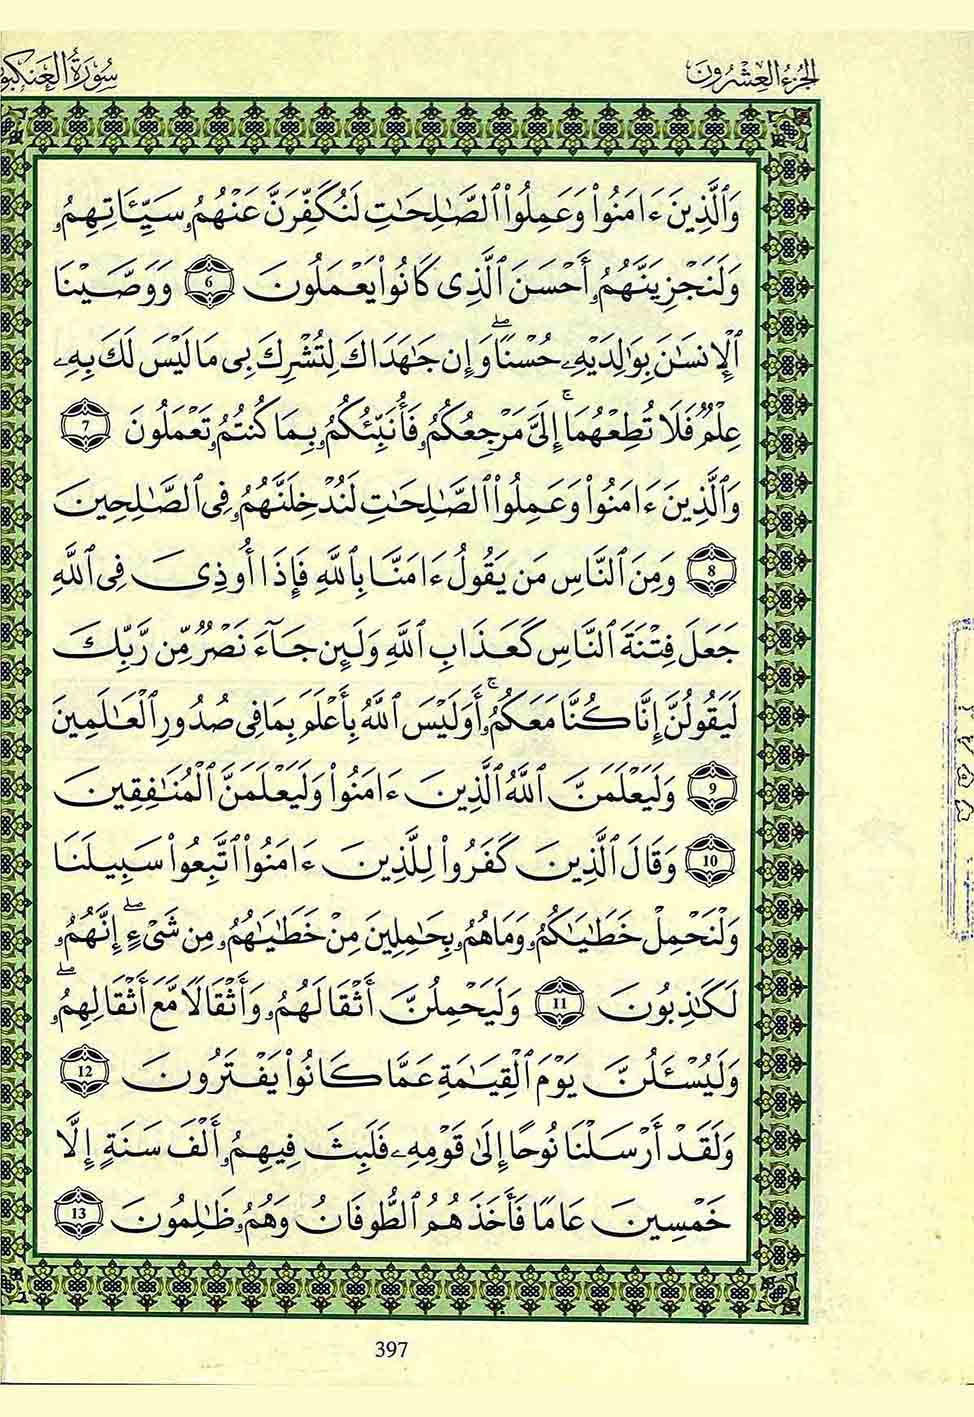 الجزء العشرون
سورة العنكبو
وَٱلَّذِينَ ءَامَنُوا۟ وَعَمِلُوا۟ ٱلصَّٰلِحَٰتِ لَنُكَفِّرَنَّ عَنْهُمُۥ سَيِّـَٔاتِهِمُۥ
وَلَنَجْزِيَنَّهُمُۥٓ أَحْسَنَ ٱلَّذِى كَانُوا۟ يَعْمَلُونَ 6 وَوَصَّيْنَا
ٱلْإِنسَٰنَ بِوَٰلِدَيْهِۦ حُسْنًاۖ وَإِن جَٰهَدَاكَ لِتُشْرِكَ بِى مَا لَيْسَ لَكَ بِهِۦ
عِلْمٌ فَلَا تُطِعْهُمَآۚ إِلَىَّ مَرْجِعُكُمُۥ فَأُنَبِّئُكُمُۥ بِمَا كُنتُمُۥ تَعْمَلُونَ 7
وَٱلَّذِينَ ءَامَنُوا۟ وَعَمِلُوا۟ ٱلصَّٰلِحَٰتِ لَنُدْخِلَنَّهُمُۥ فِى ٱلصَّٰلِحِينَ
8 وَمِنَ ٱلنَّاسِ مَن يَقُولُ ءَامَنَّا بِٱللَّهِ فَإِذَآ أُوذِىَ فِى ٱللَّهِ
جَعَلَ فِتْنَةَ ٱلنَّاسِ كَعَذَابِ ٱللَّهِ وَلَئِن جَآءَ نَصْرٌ مِّن رَّبِّكَ
لَيَقُولُنَّ إِنَّا كُنَّا مَعَكُمُۥٓۚ أَوَلَيْسَ ٱللَّهُ بِأَعْلَمَ بِمَا فِى صُدُورِ ٱلْعَٰلَمِينَ
9 وَلَيَعْلَمَنَّ ٱللَّهُ ٱلَّذِينَ ءَامَنُوا۟ وَلَيَعْلَمَنَّ ٱلْمُنَٰفِقِينَ
10 وَقَالَ ٱلَّذِينَ كَفَرُوا۟ لِلَّذِينَ ءَامَنُوا۟ ٱتَّبِعُوا۟ سَبِيلَنَا
وَلْنَحْمِلْ خَطَٰيَٰكُمُۥ وَمَا هُمُۥ بِحَٰمِلِينَ مِنْ خَطَٰيَٰهُمُۥ مِن شَىْءٍۖ إِنَّهُمُۥ
لَكَٰذِبُونَ 11 وَلَيَحْمِلُنَّ أَثْقَالَهُمُۥ وَأَثْقَالًا مَّعَ أَثْقَالِهِمُۥۖ
وَلَيُسْـَٔلُنَّ يَوْمَ ٱلْقِيَٰمَةِ عَمَّا كَانُوا۟ يَفْتَرُونَ 12
وَلَقَدْ أَرْسَلْنَا نُوحًا إِلَىٰ قَوْمِهِۦ فَلَبِثَ فِيهِمُۥٓ أَلْفَ سَنَةٍ إِلَّا
خَمْسِينَ عَامًا فَأَخَذَهُمُ ٱلطُّوفَانُ وَهُمُۥ ظَٰلِمُونَ 13
397